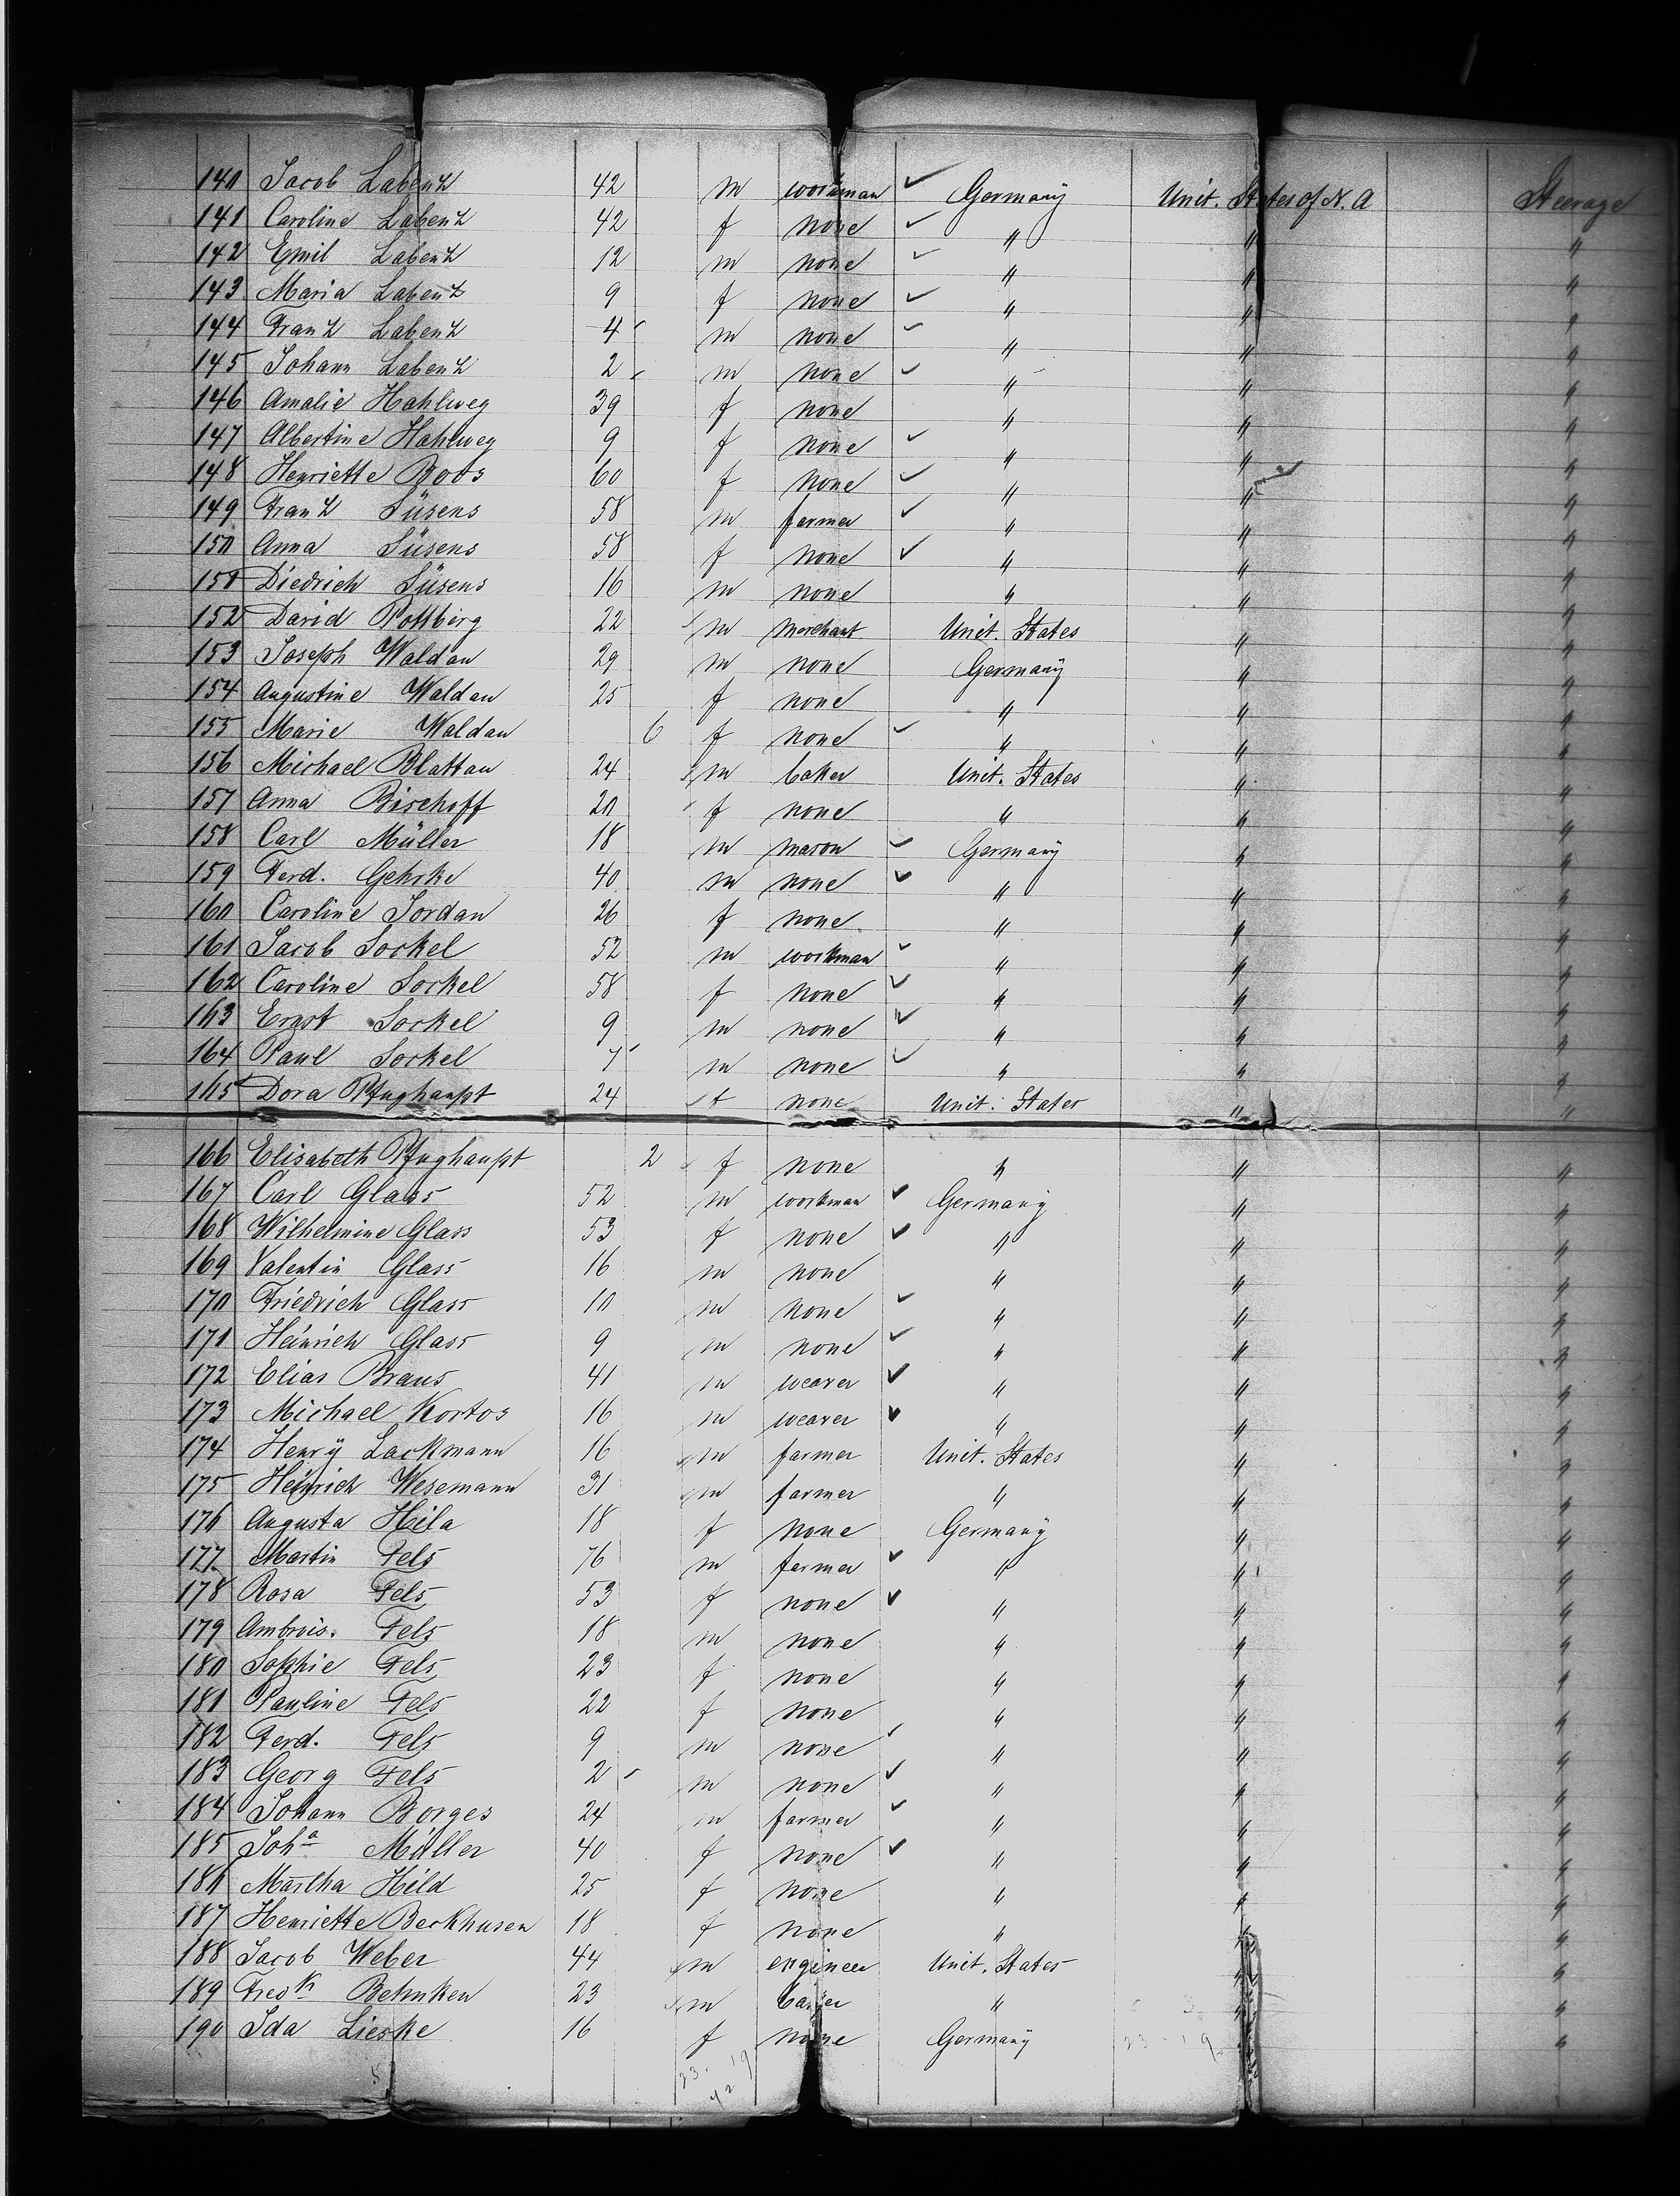 140 Jacob Labenz 42 m workman Germany Unit. States of N. A Steerage
141 Caroline Labenz 42 f none " " "
142 Emil Labenz 12 m none " " "
143 Maria Labenz 9 f none " " "
144 Franz Labenz 4 m none " " "
145 Johann Labenz 2 m none " " "
146 Amalie Hahlweg 39 f none " " "
147 Albertine Hahlweg 9 f none " " "
148 Henriette Boos 60 f none " " "
149 Franz Süsens 58 m farmer " " "
150 Anna Süsens 58 f none " " "
151 Diedrich Süsens 16 m none " " "
152 David Pottberg 22 m merchant Unit. States " "
153 Joseph Waldau 29 m none Germany " "
154 Augustine Waldau 25 f none " " "
155 Marie Waldau 6 f none " " "
156 Michael Blattau 24 m baker Unit. States " "
157 Anna Bischoff 20 f none " " "
158 Carl Müller 18 m mason Germany " "
159 Ferd. Gehrke 40 m none " " "
160 Caroline Jordan 26 f none " " "
161 Jacob Sockel 52 m workman " " "
162 Caroline Sockel 58 f none " " "
163 Ernst Sockel 9 m none " " "
164 Paul Sockel 7 m none " " "
165 Dora Pfughaupt 24 f none Unit. States " "
166 Elisabeth Pfughaupt 2 f none " " "
167 Carl Glass 52 m workman Germany " "
168 Wilhelmine Glass 53 f none " " "
169 Valentin Glass 16 m none " " "
170 Friedrich Glass 10 m none " " "
171 Heinrich Glass 9 m none " " "
172 Elias Braus 41 m weaver " " "
173 Michael Kortos 16 m weaver " " "
174 Henry Lackmann 16 m farmer Unit. States " "
175 Heinrich Wesemann 31 m farmer " " "
176 Augusta Hila 18 f none Germany " "
177 Martin Fels 76 m farmer " " "
178 Rosa Fels 53 f none " " "
179 Ambrois. Fels 18 m none " " "
180 Sophie Fels 23 f none " " "
181 Pauline Fels 22 f none " " "
182 Ferd. Fels 9 m none " " "
183 Georg Fels 2 m none " " "
184 Johann Borges 24 m farmer " " "
185 Joh<sup>a</sup> Müller 40 f none " " "
186 Martha Hild 25 f none " " "
187 Henriette Beckhusen 18 f none " " "
188 Jacob Weber 44 m engineer Unit. States " "
189 Fred<sup>k</sup> Behnken 23 m baker " " "
190 Ida Lieske 16 f none Germany " "
23 - 19
23 - 19
42